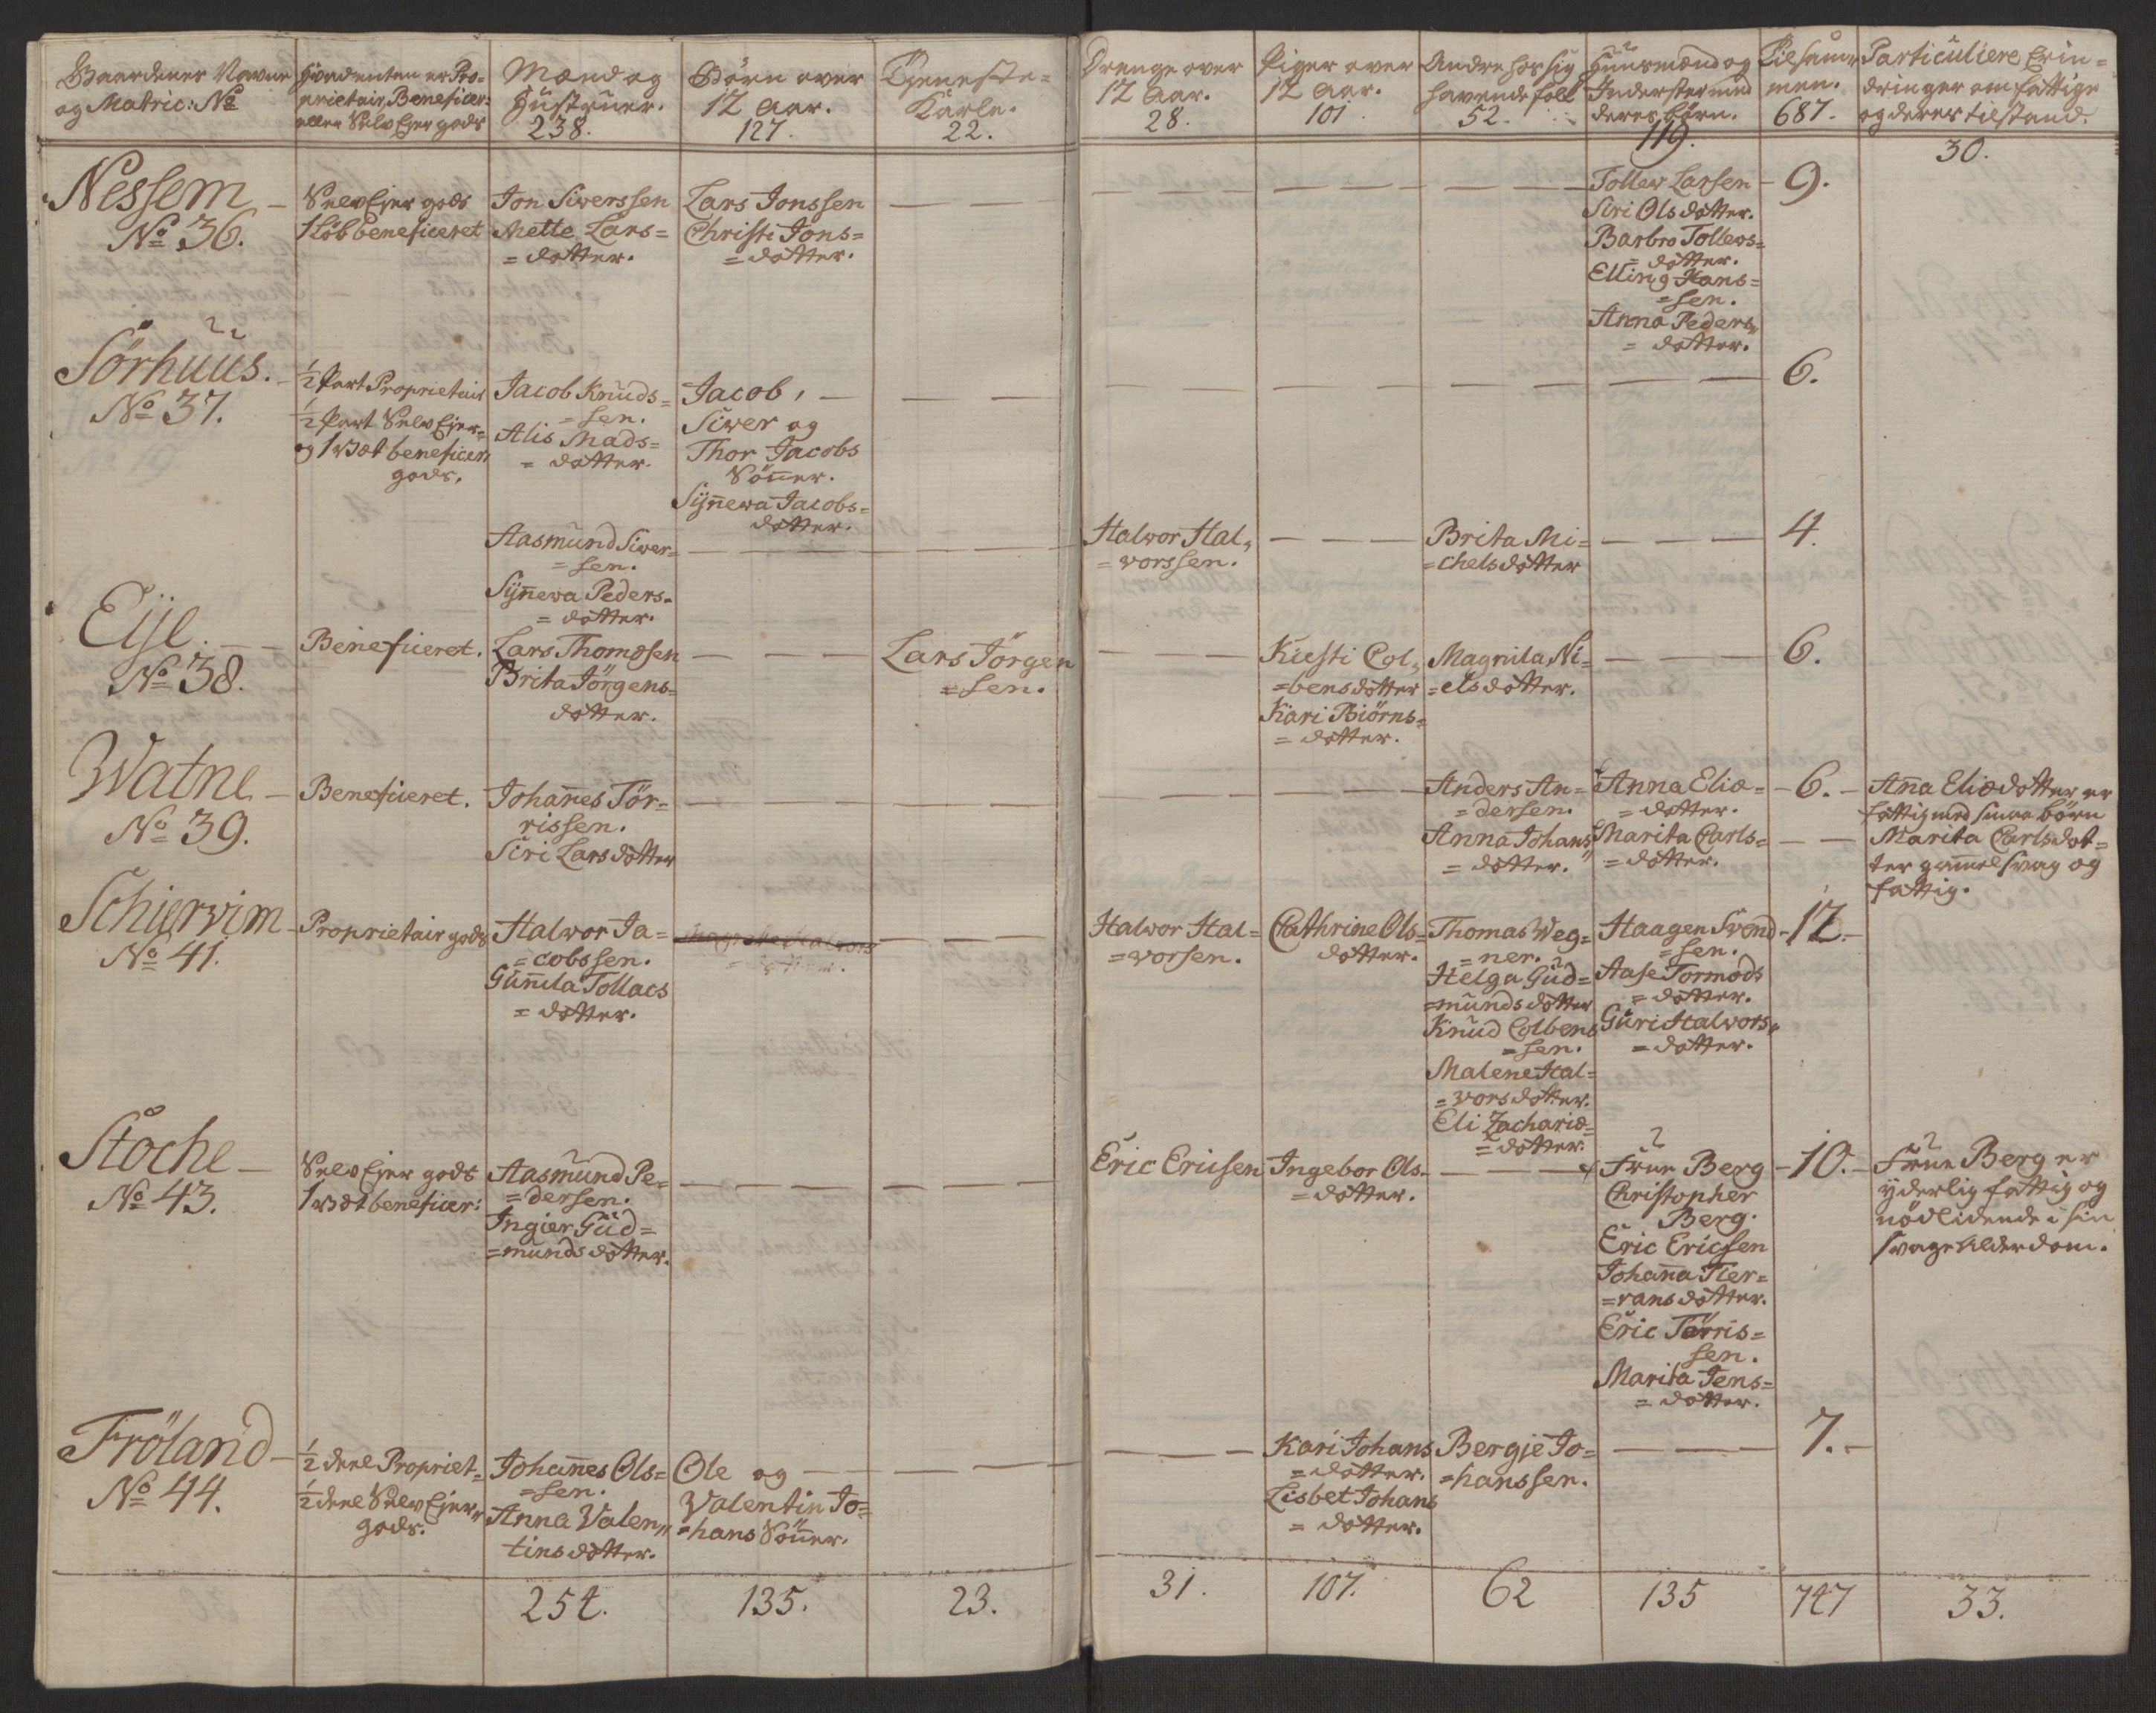 Gaardenes Navne
og Matric: No
Hvadenten er Pro-
prietair, Beneficer:
eller Selv Ejer gods
Mænd og
Hustruer.
238.
Börn over
12 Aar.
127.
Tjeneste-
Karle.
22.
Drenge over
12 Aar.
28.
Piger over
12 Aar.
101
Andre hos sig
havende folk
52.
Huusmænd og
Inderster med
deres börn.
119.
Tilsam-
men.
687.
Particuliere Erin=
dringer om fattige
og deres tilstand.
30.
Nessem
No 36.
Selv Ejer gods
1 Löb beneficeret
Jon Siwerssen
Mette Lars=
=dotter.
Lars Jonssen
Christi Jons=
=dotter.
Tollew Larsen
Siri Olsdotter.
Barbro Tollews=
=dotter.
Elling Hans=
=sen.
Anna Peders„
=dotter.
9.
Sörhuus.
No 37.
½ Part Proprietair
½ Part Selv Ejer=
og 1 Wæt beneficer:
gods.
Jacob Knuds=
=sen.
Alis Mads=
=dotter.
Jacob,
Siwer og
Thor Jacobs
Sönner.
Synnewa Jacobs=
dotter.
6.
Aasmund Siwer=
=sen.
Synnewa Peders=
=dotter.
Halwor Hal„
=vorssen.
Brita Mi=
=chelsdotter
4.
Eije
No 38.
Beneficeret.
Lars Thomæsen
Brita Jörgens=
dotter.
Lars Jörgen
=sen.
Kiesti Col„
=bensdotter
Kari Biörns=
=dotter.
Magnila Ni=
=elsdotter.
6.
Watne
No 39.
Beneficeret.
Johannes Tör=
rissen.
Siri Larsdotter
Anders An=
=dersen.
Anna Johans„
=dotter.
Anna Eliæ=
=dotter.
Marita Carls=
=dotter.
6.
Anna Eliædotter er
fattig med smaa börn
Marita Carlsdot=
ter gammel svag og
fattig.
Schiervim
No 41.
Proprietair gods
Halwor Ja=
=cobssen.
Gunnila Tollacs
=dotter.
Halwor Hal=
=vorsen.
Cathrine Ols=
dotter.
Thomas Weg=
=ner.
Helga Gud=
=mundsdotter
Knud Colbens
=sen.
Malene Hal=
=vorsdotter.
Eli Zachariæ=
=dotter.
Haagen Svend
=sen.
Aase Tormods
=dotter.
Guri Halvors„
=dotter.
12.
Stoche
No 43.
Selv Ejer gods
1 Wæt beneficer:
Aasmund Pe=
=dersen.
Ingier Gud=
=mundsdotter.
Eric Ericsen
Ingebor Ols
=dotter.
Frue Berg
Christopher
Berg.
Eric Ericsen
Johanna Tier=
=ransdotter.
Eric Törris=
sen.
Marita Jens=
=dotter.
10.
Frue Berg er
yderlig fattig og
nödlidende i sin
svage Alderdom.
Fröland
No 44.
½ deel Propriet=
½ deel Selv Ejer„
gods.
Johannes Ols=
=sen.
Anna Valen„
tinsdotter.
Ole og
Valentin Jo=
=hans Sönner.
Kari Johans
=dotter.
Lisbet Johans
=dotter.
Bergje Jo=
=hanssen.
7.
254.
135.
23.
31.
107.
62
135
747
33.